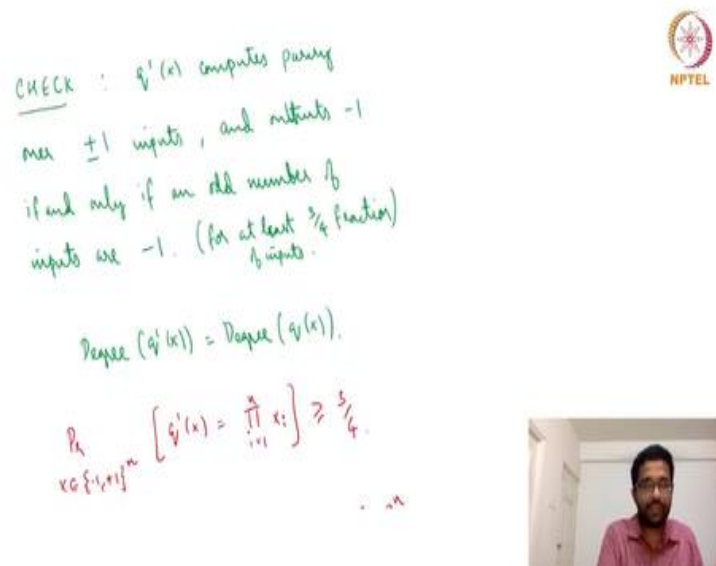 CHECK : q'(x) computes parity
over ±1 inputs, and outputs -1
if and only if an odd number of
inputs are -1. (for at least 3/4 fraction)
of inputs.
Degree (q'(x)) = Degree (q(x)).
Pr x∈{-1,+1}^n [q'(x) = ∏_{i=1}^n x_i] ≥ 3/4.
NPTEL